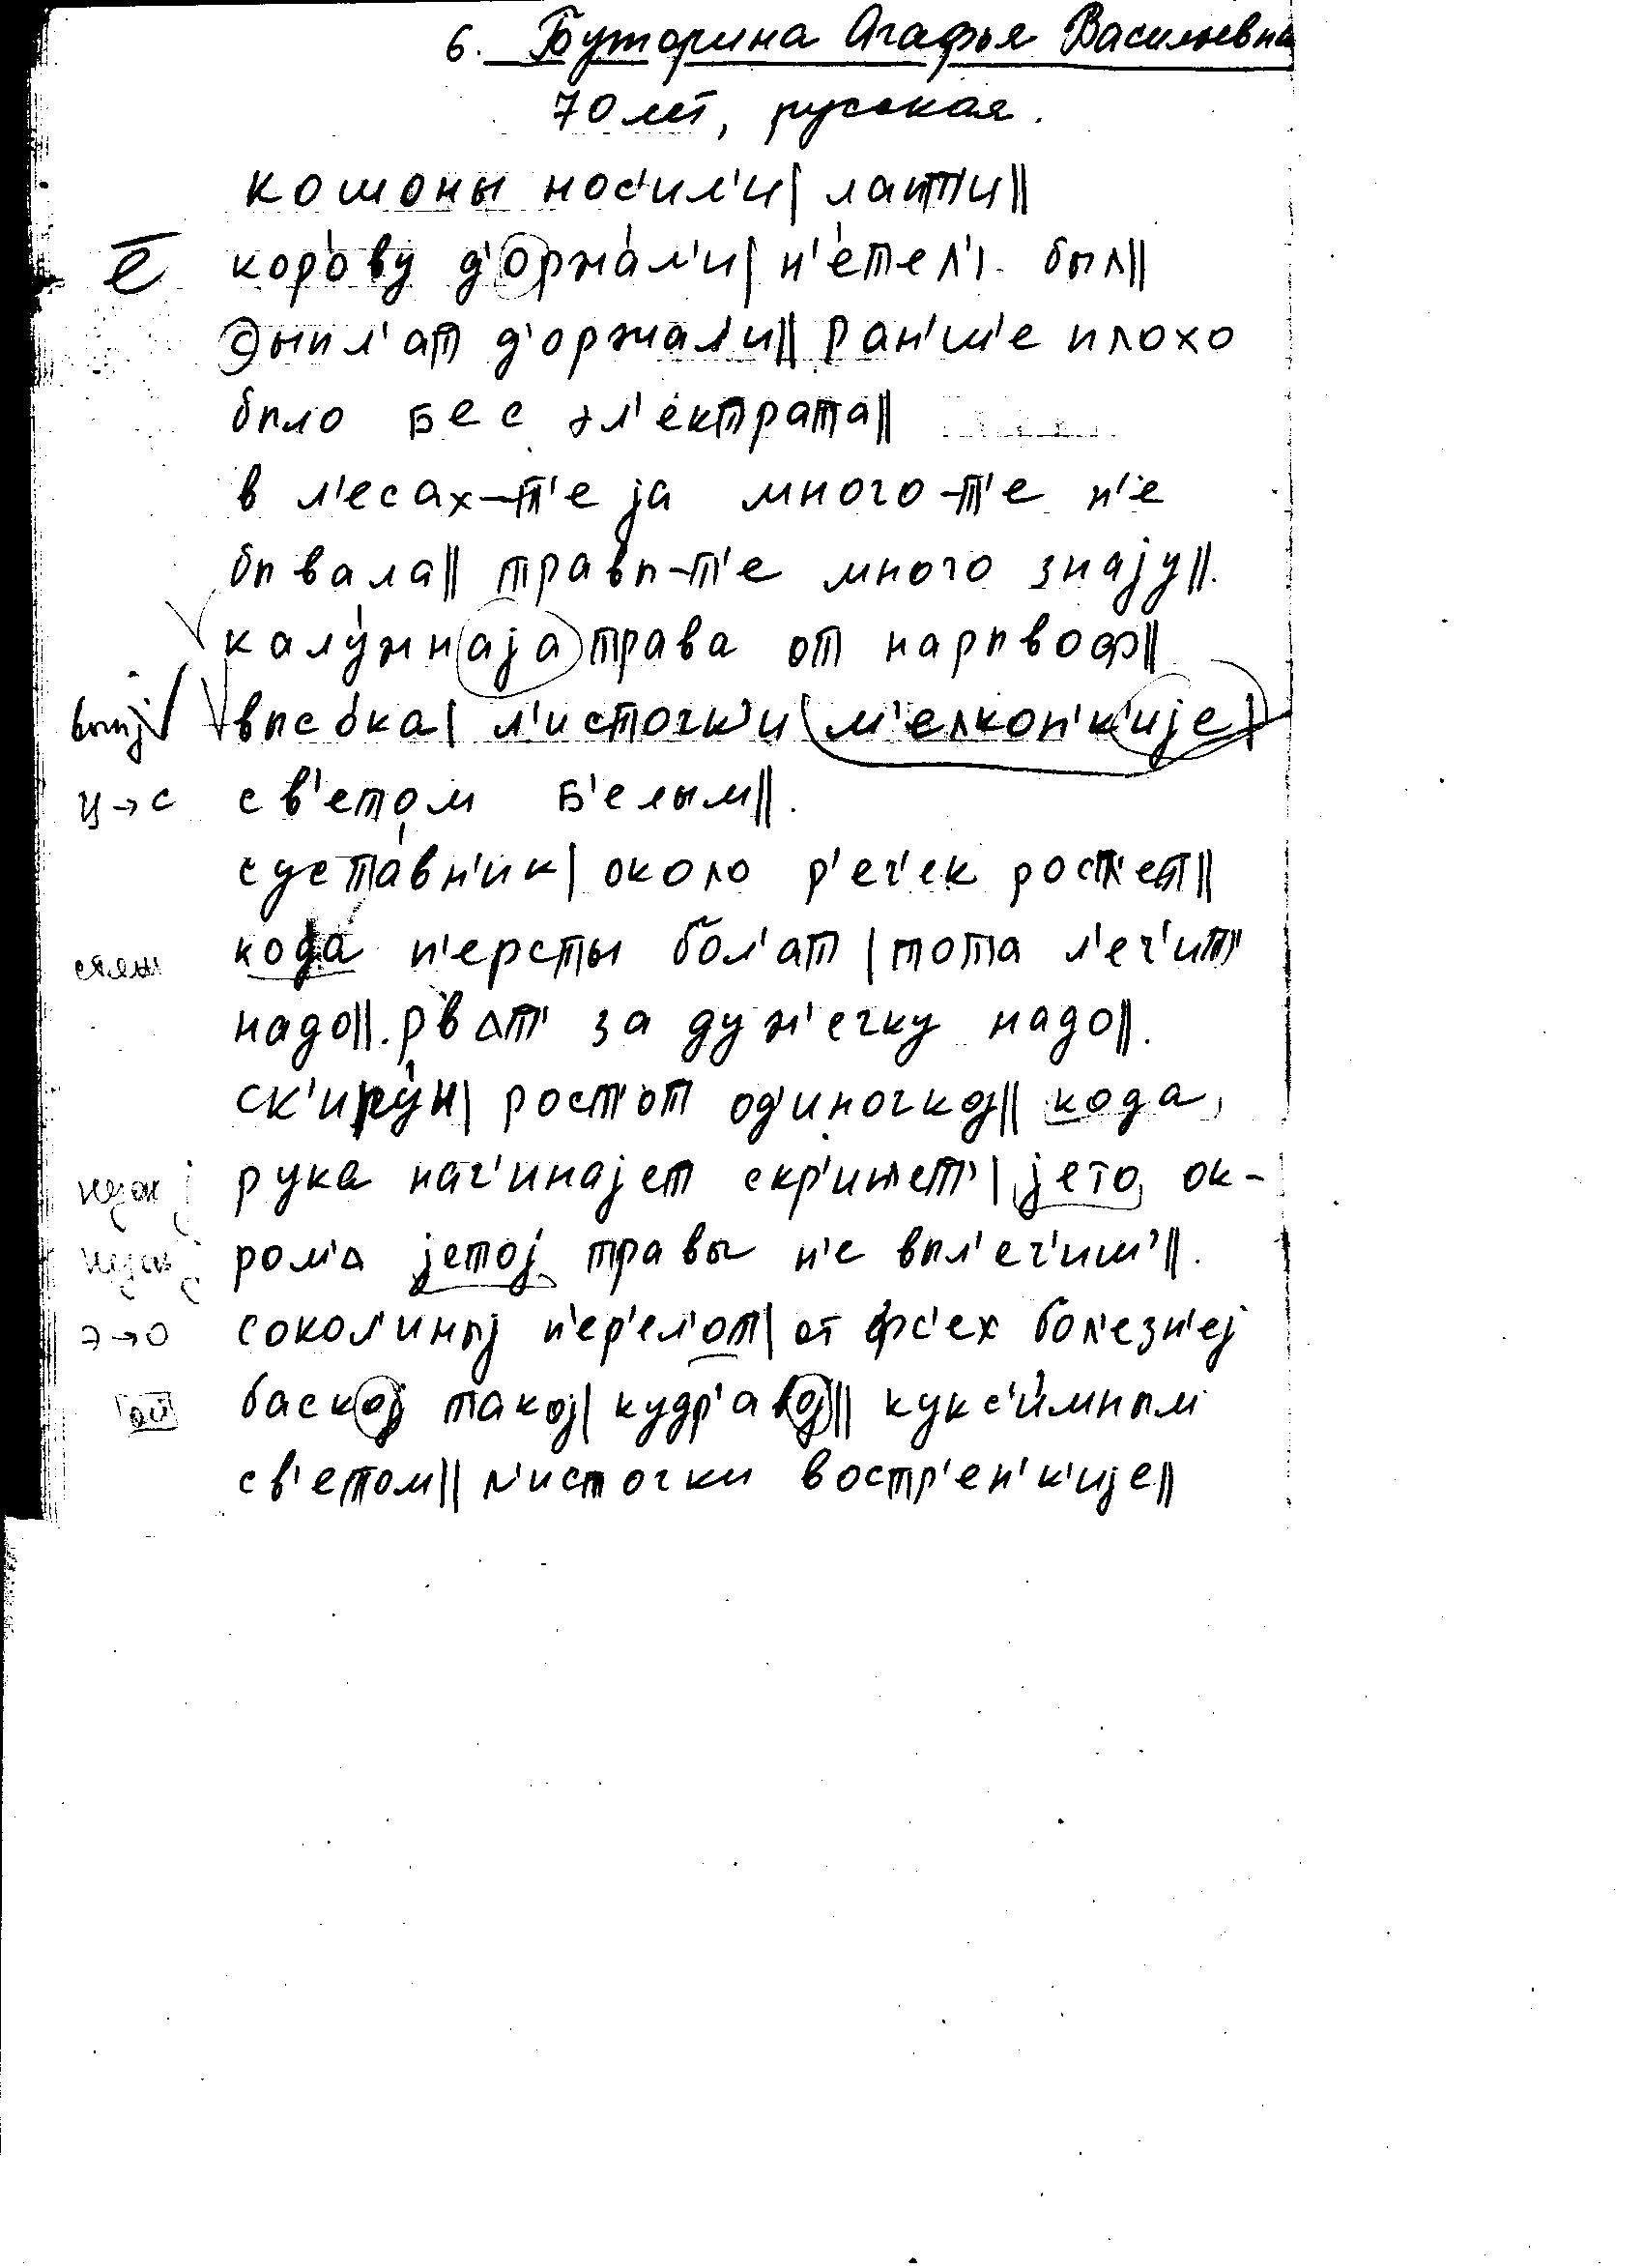 6. Буторина Агафья Васильевна
70 лет, русская.
кошоны нос'ил'и| лапт'и||
ē коро́ву д'оржа́л'и| н'е́тел' был||
цыпл'ат д'оржал'и|| ран'ш'е плохо
было бес эл'е́ктрата||
в л'есах-т'е jа много-т'е н'е
бывала|| травы-т'е много знаjу||.
калу́жнаjа трава от нарывоф||
высока| л'источк'и м'елкон'к'иjе|
ц→с св'етом б'елым||.
суста́вн'ик| около р'еч'ек рост'ет||
кода п'ерсты бол'ат| тота л'еч'ит'
надо||. рват' за дуж'ечку надо||.
ск'ипу́н| рост'от од'иночкоj|| кода,
рука нач'инаjет скр'ипет'| jето ок-
ром'а jетоj травы н'е выл'еч'иш'||.
э→о сокол'иныj п'ер'ел'от| от фс'ех бол'езн'еj
ой баскоj такоj| кудр'авоj|| кукс'и́мным
св'етом|| л'источки востр'ен'к'иjе||